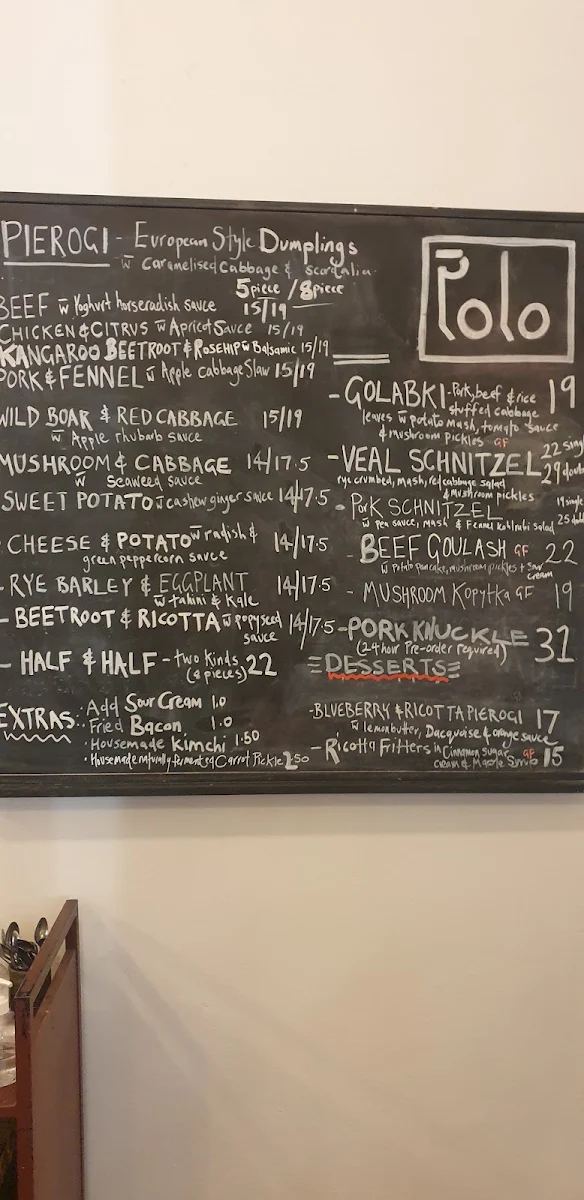 PIEROGI - European Style Dumplings
w̄ Caramelised Cabbage & scordalia
5piece / 8piece
BEEF w̄ Yoghurt horseradish sauce 15/19
CHICKEN & CITRUS w̄ Apricot Sauce 15/19
KANGAROO BEETROOT & ROSEHIP w̄ Balsamic 15/19
PORK & FENNEL w̄ Apple cabbage Slaw 15/19
WILD BOAR & RED CABBAGE 15/19
w̄ Apple rhubarb sauce
MUSHROOM & CABBAGE 14/17.5
w̄ Seaweed sauce
SWEET POTATO w̄ cashew ginger sauce 14/17.5
CHEESE & POTATO w̄ radish & 14/17.5
green peppercorn sauce
- RYE BARLEY & EGGPLANT 14/17.5
w̄ tahini & Kale
- BEETROOT & RICOTTA w̄ popyseed 14/17.5
sauce
- HALF & HALF - two kinds 22
(8 pieces)
EXTRAS: · Add Sour Cream 1.0
· Fried Bacon 1.0
· Housemade Kimchi 1.50
· Housemade naturally fermented Carrot Pickle 2.50
Polo
- GOLABKI - Pork, beef & rice 19
stuffed cabbage
leaves w̄ potato mash, tomato sauce
& mushroom pickles GF
- VEAL SCHNITZEL 22 single
29
rye crumbed, mash, red cabbage salad
& mushroom pickles
- PORK SCHNITZEL 19 single
25
w̄ pea sauce, mash & Fennel Kohlrabi salad
- BEEF GOULASH GF 22
w̄ Potato pancake, mushroom pickles + sour
cream
- MUSHROOM Kopytka GF 19
- PORK KNUCKLE 31
(24 hour Pre-order required)
DESSERTS
- BLUEBERRY & RICOTTA PIEROGI 17
w̄ lemon butter, Dacquoise & orange sauce
- Ricotta Fitters in Cinnamon Sugar GF 15
cream & Maple Syrup